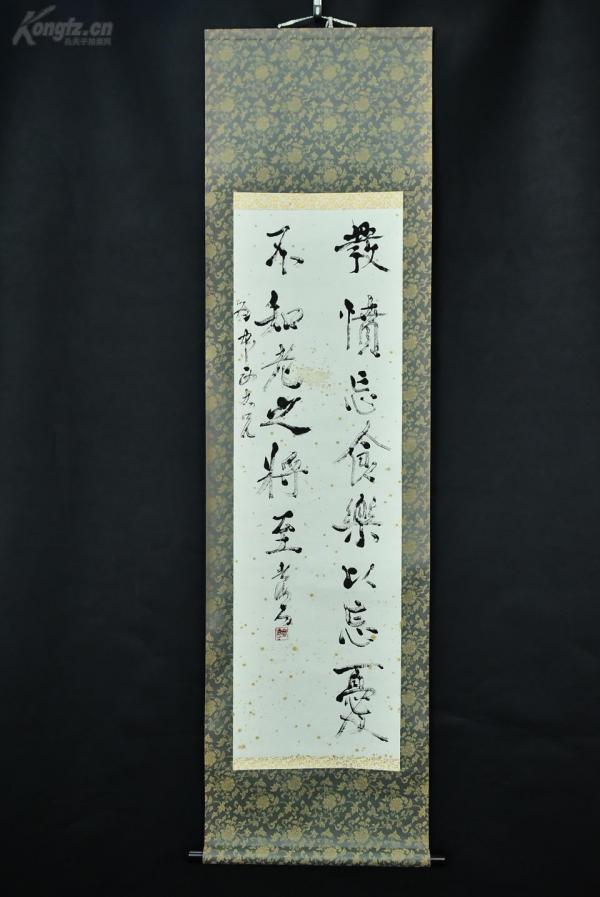 發憤忘食樂以忘憂
不知老之將至
Kongfz.cn
孔夫子拍卖网